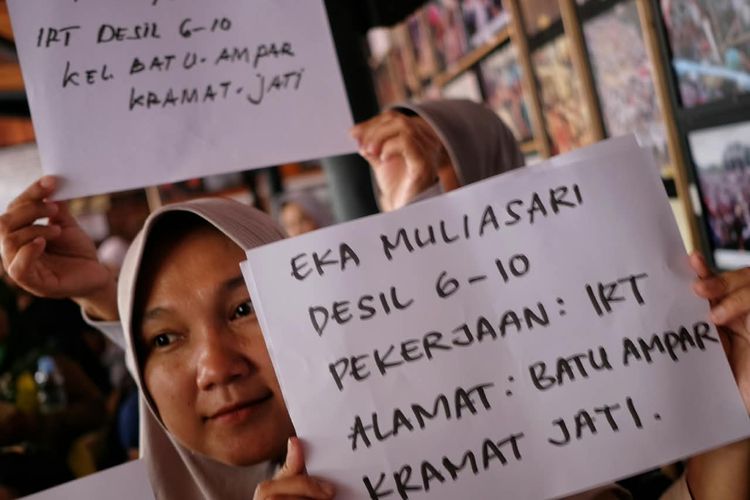 IRT DESIL 6-10
KEL. BATU. AMPAR
KRAMAT. JATI
EKA MULIASARI
DESIL 6-10
PEKERJAAN: IRT
ALAMAT: BATU AMPAR
KRAMAT JATI.